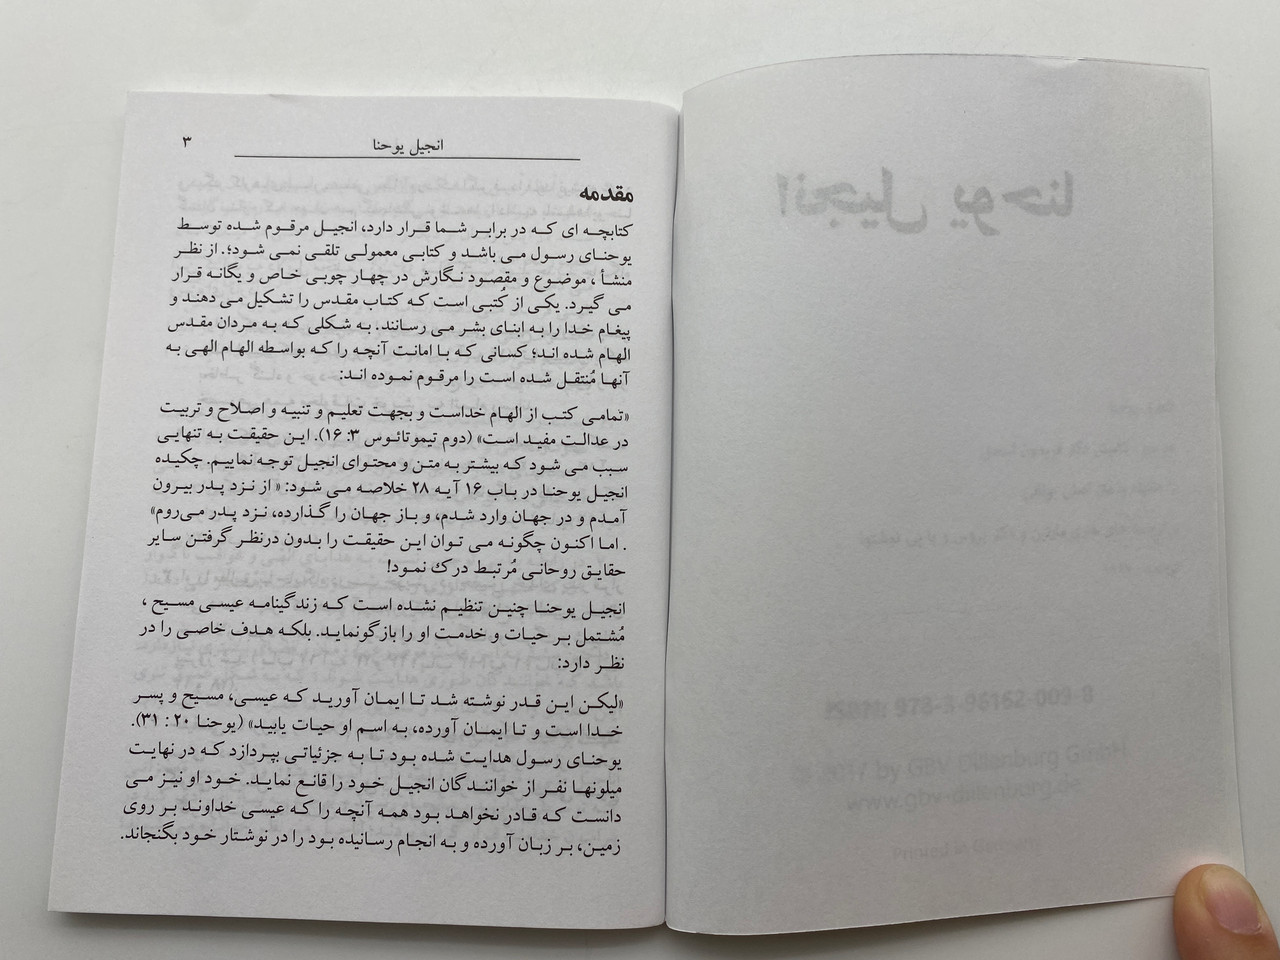 انجیل یوحنا
۳
مقدمه
کتابچه ای که در برابر شما قرار دارد، انجیل مرقوم شده توسط
یوحنای رسول می باشد و کتابی معمولی تلقی نمی شود؛. از نظر
منشأ ، موضوع و مقصود نگارش در چهار چوبی خاص و یگانه قرار
می گیرد. یکی از کُتبی است که کتاب مقدس را تشکیل می دهند و
پیغام خدا را به ابنای بشر می رسانند. به شکلی که به مردان مقدس
الهام شده اند؛ کسانی که با امانت آنچه را که بواسطه الهام الهی به
آنها مُنتقل شده است را مرقوم نموده اند:
«تمامی کتب از الهام خداست و بجهت تعلیم و تنبیه و اصلاح و تربیت
در عدالت مفید است» (دوم تیموتائوس ۳: ۱۶). این حقیقت به تنهایی
سبب می شود که بیشتر به متن و محتوای انجیل توجه نماییم. چکیده
انجیل یوحنا در باب ۱۶ آیه ۲۸ خلاصه می شود: « از نزد پدر بیرون
آمدم و در جهان وارد شدم، و باز جهان را گذارده، نزد پدر می‌روم»
. اما اکنون چگونه می توان این حقیقت را بدون درنظر گرفتن سایر
حقایق روحانی مُرتبط درک نمود!
انجیل یوحنا چنین تنظیم نشده است که زندگینامه عیسی مسیح ،
مُشتمل بر حیات و خدمت او را بازگونماید. بلکه هدف خاصی را در
نظر دارد:
«لیکن این قدر نوشته شد تا ایمان آورید که عیسی، مسیح و پسر
خدا است و تا ایمان آورده، به اسم او حیات یابید» (یوحنا ۲۰ : ۳۱).
یوحنای رسول هدایت شده بود تا به جزئیاتی بپردازد که در نهایت
میلونها نفر از خوانندگان انجیل خود را قانع نماید. خود او نیز می
دانست که قادر نخواهد بود همه آنچه را که عیسی خداوند بر روی
زمین، بر زبان آورده و به انجام رسانیده بود را در نوشتار خود بگنجاند.